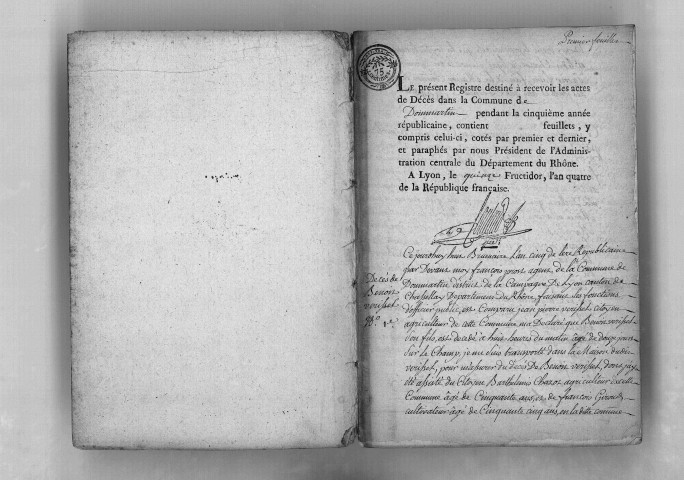 Premier feuillet
LE présent Registre destiné à recevoir les actes
de Décès dans la Commune de
Dommartin pendant la cinquième année
républicaine, contient feuillets, y
compris celui-ci, cotés par premier et dernier,
et paraphés par nous Président de l'Adminis-
tration centrale du Département du Rhône.
A Lyon, le quinze Fructidor, l'an quatre
de la République française.
Décès de
Benoit
verisset
Ce jourdhuy huit Brumaire L'an cinq de l'ere Republicaine
par Devant moy françois agent de la Commune de
Dommartin District de la Campagne De Lyon canton de
Chasselay Departement du Rhône, faisant les fonctions
d'officier public, est Comparu jean pierre verisset citoyen
agriculteur de cette Commune, ma Declaré que Benoit verisset
son fils, est decedé a huit heures du matin âgé de douze jours
sur le Champ, je me suis transporté dans la Maison dudit
verisset, pour m'assurer du Decès De Benoit verisset, dont j'ay
été assisté du Citoyen Barthelemis agriculteur
Commune âgé de Cinquante ans, et de françois
cultivateur âgé de Cinquante cinq ans, en la dite commune